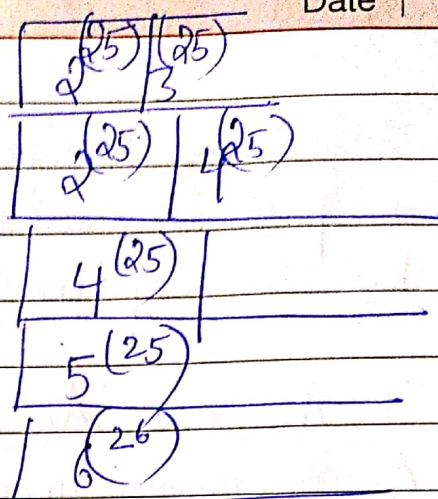 Date
2(25) 3(25)
2(25) 4(25)
4(25)
5(25)
6(26)